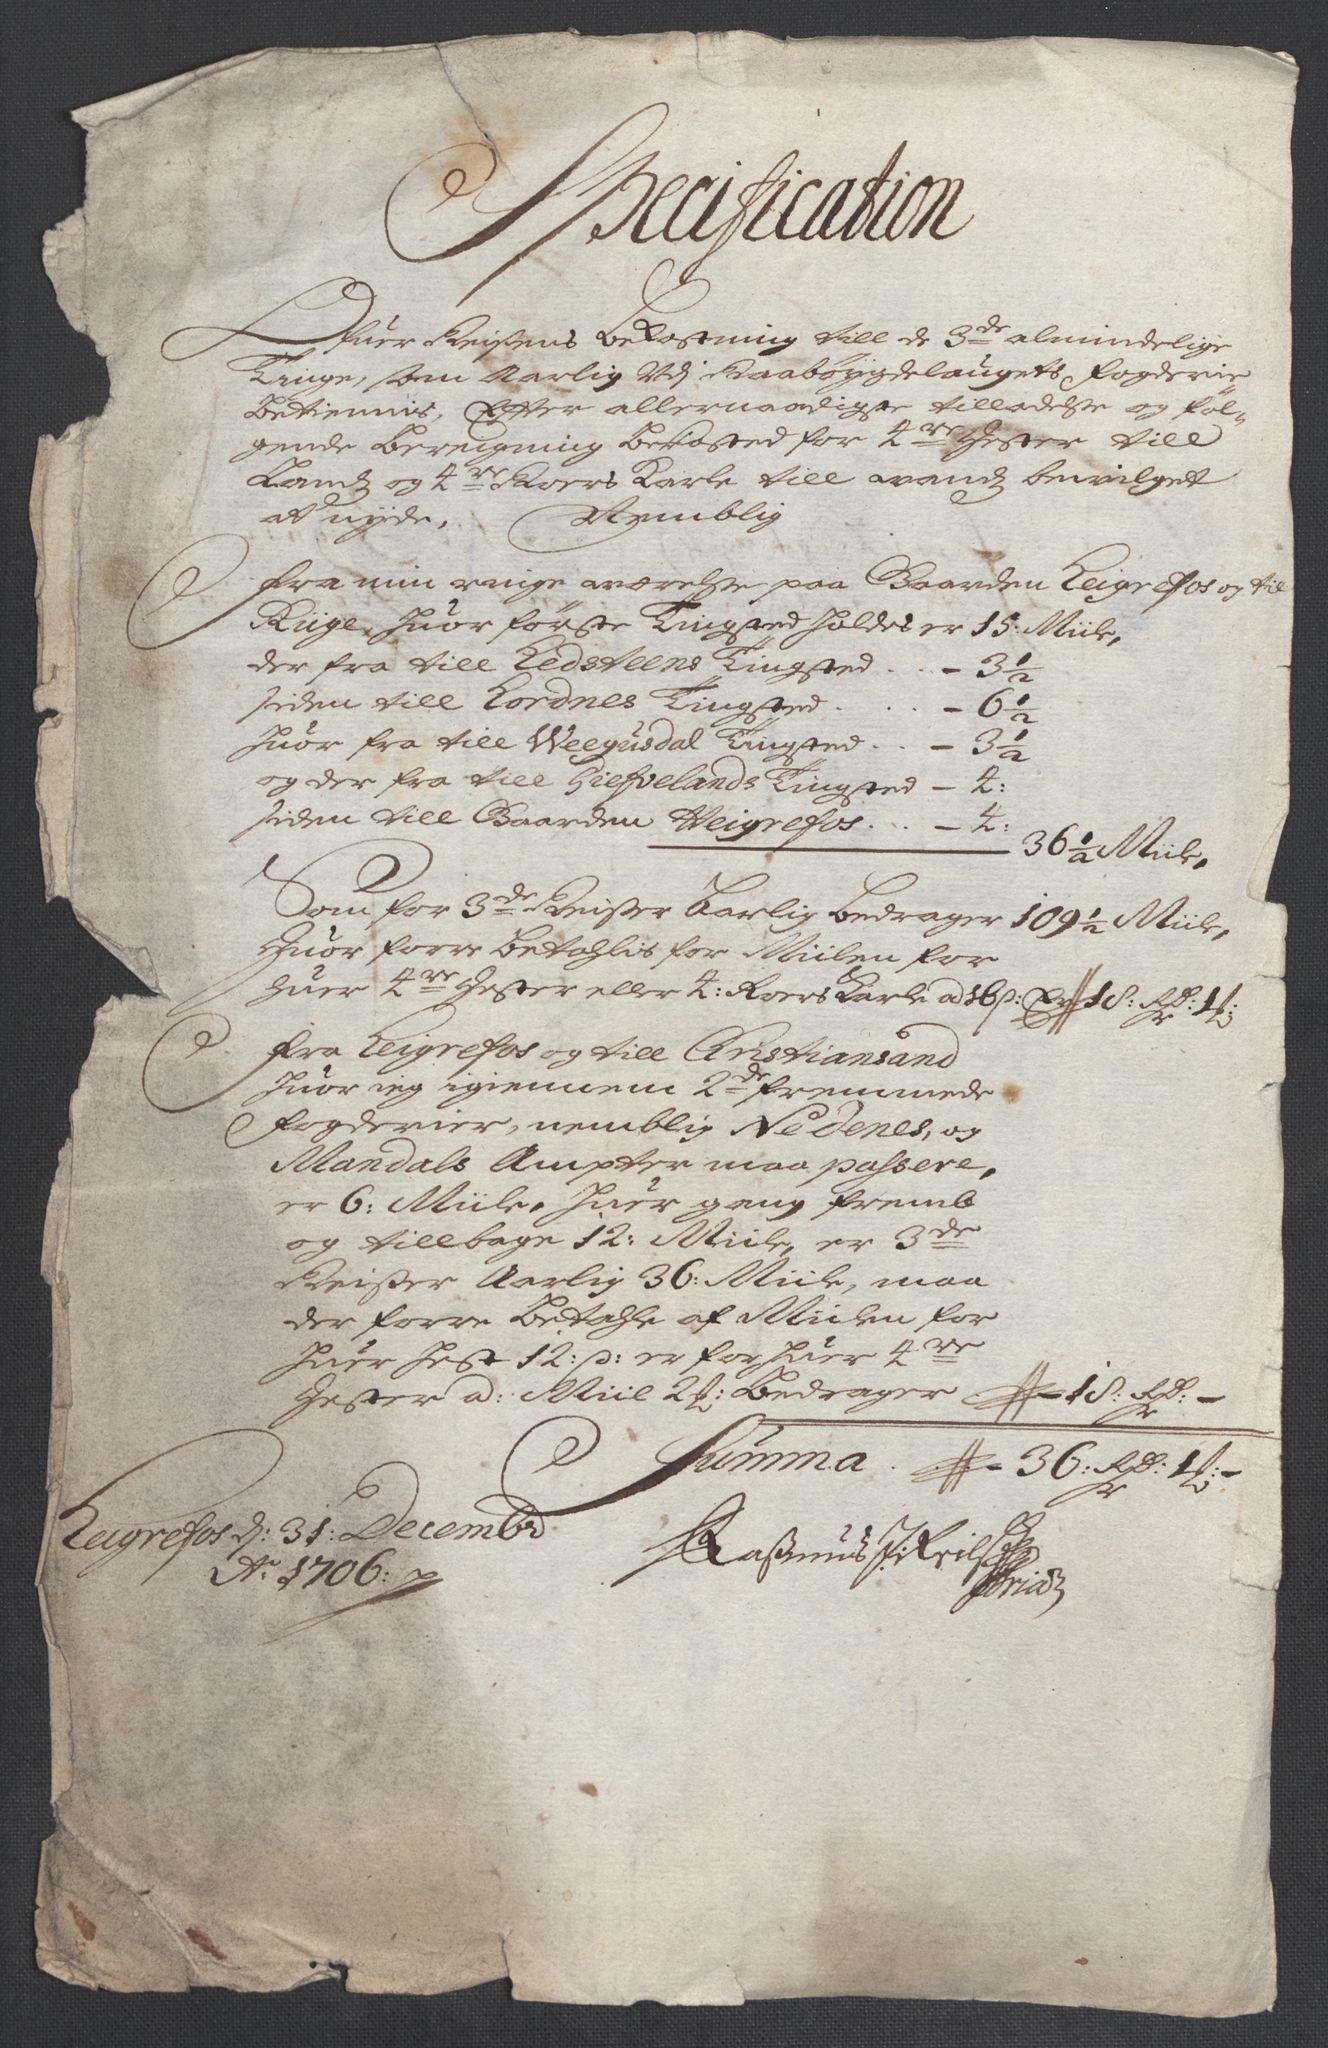 Specification
Ofuer Reisens Bekostning till de 3de almindelige
Tinge, som Aarlig Udj Raabøygdelaugets fogderie
Betiennis, Efter allernaadigste tilladelse og føl-
gende Beregning Bekosted for 4re Hester till
Landz og 4re Roers Karle till vandz bevilget
at nyde, Nemblig
Fra min ringe værelse paa Gaarden Leigrefos og til
Rüge, huor første Tingsted holdes er 15: Miile,
der fra till Kedsteens Tingsted . . - 3 1/2
siden till Hordnes Tingsted . . - 6 1/2
huor fra till Weegusdal Tingsted . . - 3 1/2
og der fra till Hiefvelands Tingsted - 4:
siden till Gaarden Heigrefos . . - 4:
36 1/2 Miile,
Som for 3de Reiser Aarlig bedrager 109 1/2 Miile,
Huor forre betahlis for Miilen for
huer 4re Hester eller 4: Roers Karle a 16 s: Er 18: Rdr: 1 ℔:
Fra Leigrefos og till Christiansand
huor ieg igiennem 2de fremmede
fogderier, nemblig Nedenes, og
Mandals Ampter maa passere,
er 6: Miile, huer gang fremb
og tillbage 12: Miile, er 3de
Reiser Aarlig 36: Miile, maa
der forre betahle af Miilen for
huer hest 12: s: er for huer 4re
Hester a: Miil 2 ℔: bedrager - 18: Rdr: -
Summa . - 36: Rdr: 1 ℔: -
Leigrefos d: 31: Decembr
Ao 1706: p
Rasmus